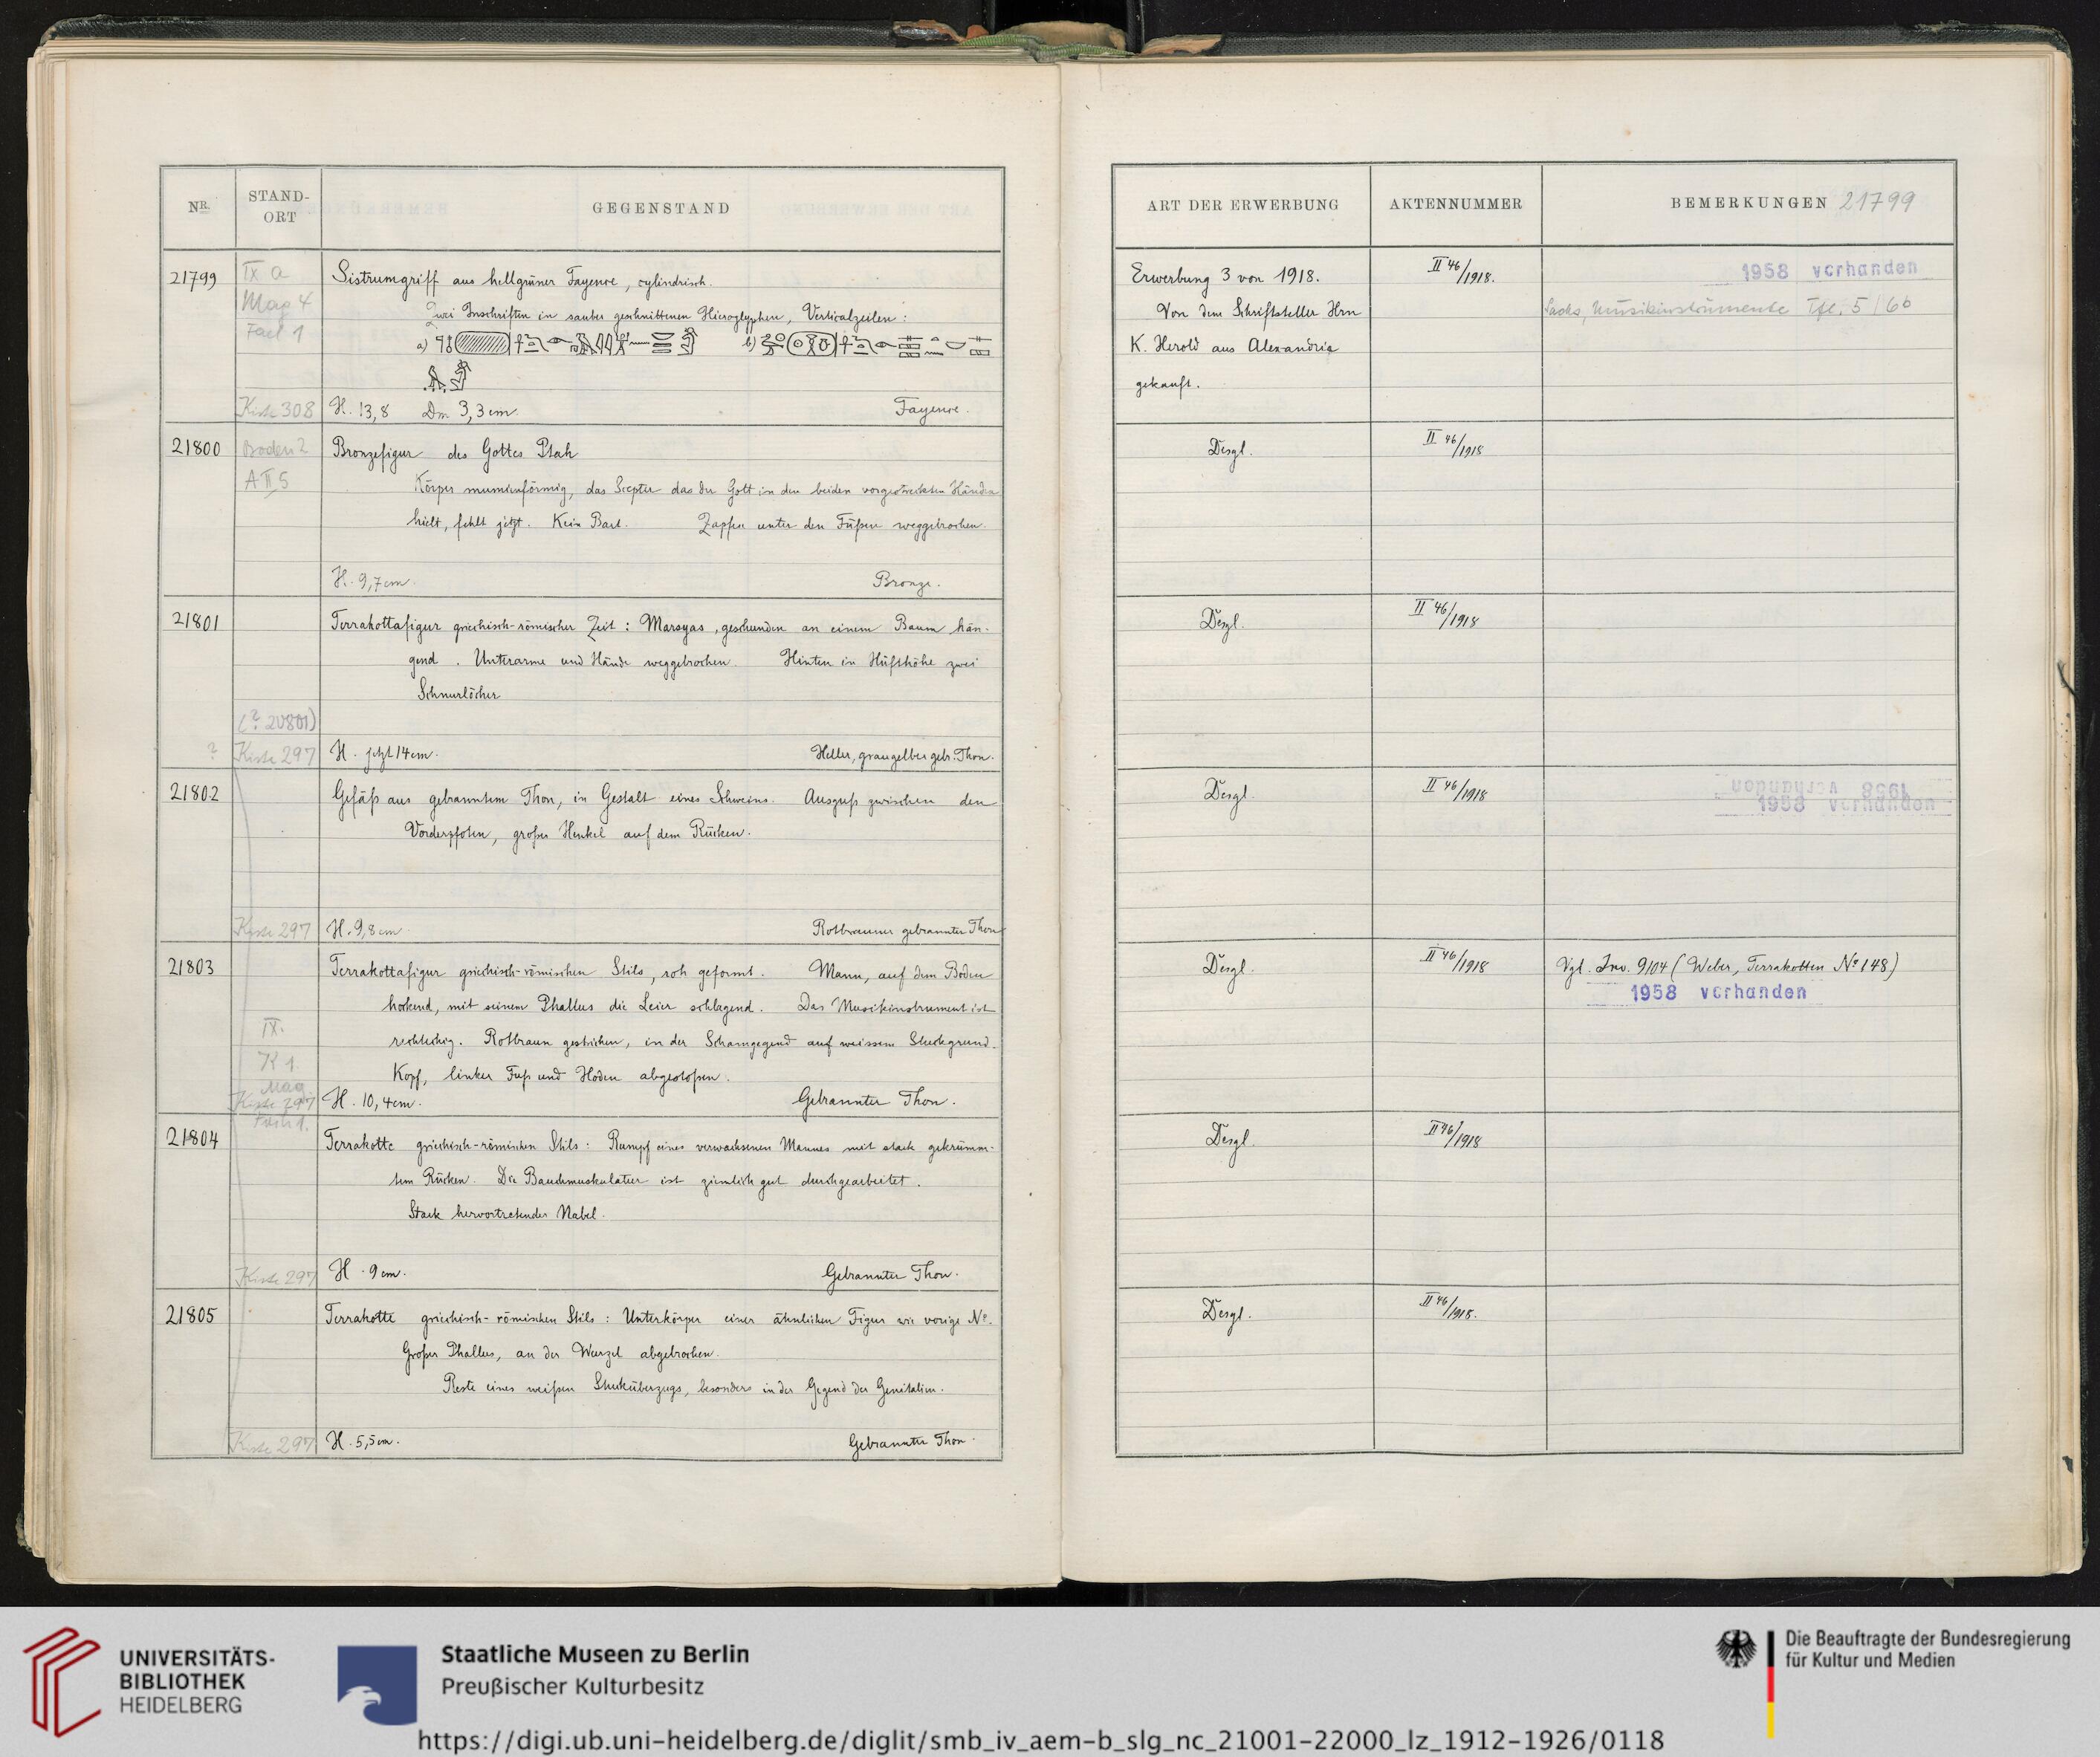 NR.
STAND-
ORT
GEGENSTAND
21799
IX a
Mag 4
Fach 1
Sistrumgriff aus hellgrüner Fayence, cylindrisch.
Zwei Inschriften in sauber geschnittenen Hieroglyphen, Verticalzeilen:
a)
b)
Kiste 308
H. 13,8 Dm 3,3 cm.
Fayence.
21800
Boden 2
A II 5
Bronzefigur des Gottes Ptah
Körper mumienförmig, das Scepter das der Gott in den beiden vorgestreckten Händen
hielt, fehlt jetzt. Kein Bart. Zapfen unter den Füßen weggebrochen.
H. 9,7 cm.
Bronze.
21801
Terrakottafigur griechisch-römischer Zeit: Marsyas, geschunden an einem Baum hän-
gend. Unterarme und Hände weggebrochen. Hinten in Hüfthöhe zwei
Schnurlöcher
(? 20801)
? Kiste 297
H. jetzt 14 cm.
Heller, graugelber gebr. Thon.
21802
Gefäß aus gebranntem Thon, in Gestalt eines Schweins. Ausguß zwischen den
Vorderpfoten, großer Henkel auf dem Rücken.
Kiste 297
H. 9,8 cm
Rotbrauner gebrannter Thon
21803
Terrakottafigur griechisch-römischen Stils, roh geformt. Mann, auf dem Boden
hockend, mit seinem Phallus die Leier schlagend. Das Musikinstrument ist
rechteckig. Rotbraun gestrichen, in der Schamgegend auf weissem Stuckgrund.
Kopf, linker Fuß und Hoden abgestoßen.
IX.
K 1.
Mag
Kiste 297
Fach 1.
H. 10,4 cm.
Gebrannter Thon.
21804
Terrakotte griechisch-römischen Stils: Rumpf eines verwachsenen Mannes mit stark gekrümm-
tem Rücken. Die Bauchmuskulatur ist ziemlich gut durchgearbeitet.
Stark hervortretender Nabel.
Kiste 297
H. 9 cm.
Gebrannter Thon.
21805
Terrakotte griechisch-römischen Stils: Unterkörper einer ähnlichen Figur wie vorige No.
Großer Phallus, an der Wurzel abgebrochen.
Reste eines weißen Stucküberzugs, besonders in der Gegend der Genitalien.
Kiste 297
H. 5,5 cm.
Gebrannter Thon.
ART DER ERWERBUNG
AKTENNUMMER
BEMERKUNGEN 21799
Erwerbung 3 von 1918.
Von dem Schriftsteller Hrn
K. Herold aus Alexandria
gekauft.
II 46/1918.
1958 vorhanden
Sachs, Musikinstrumente Tfl. 5/66
Desgl.
II 46/1918
Desgl.
II 46/1918
Desgl.
II 46/1918
1958 vorhanden
1958 vorhanden
Desgl.
II 46/1918
Vgl. Inv. 9104 (Weber, Terrakotten No 148)
1958 vorhanden
Desgl.
II 46/1918
Desgl.
II 46/1918.
UNIVERSITÄTS-
BIBLIOTHEK
HEIDELBERG
Staatliche Museen zu Berlin
Preußischer Kulturbesitz
Die Beauftragte der Bundesregierung
für Kultur und Medien
https://digi.ub.uni-heidelberg.de/diglit/smb_iv_aem-b_slg_nc_21001-22000_lz_1912-1926/0118